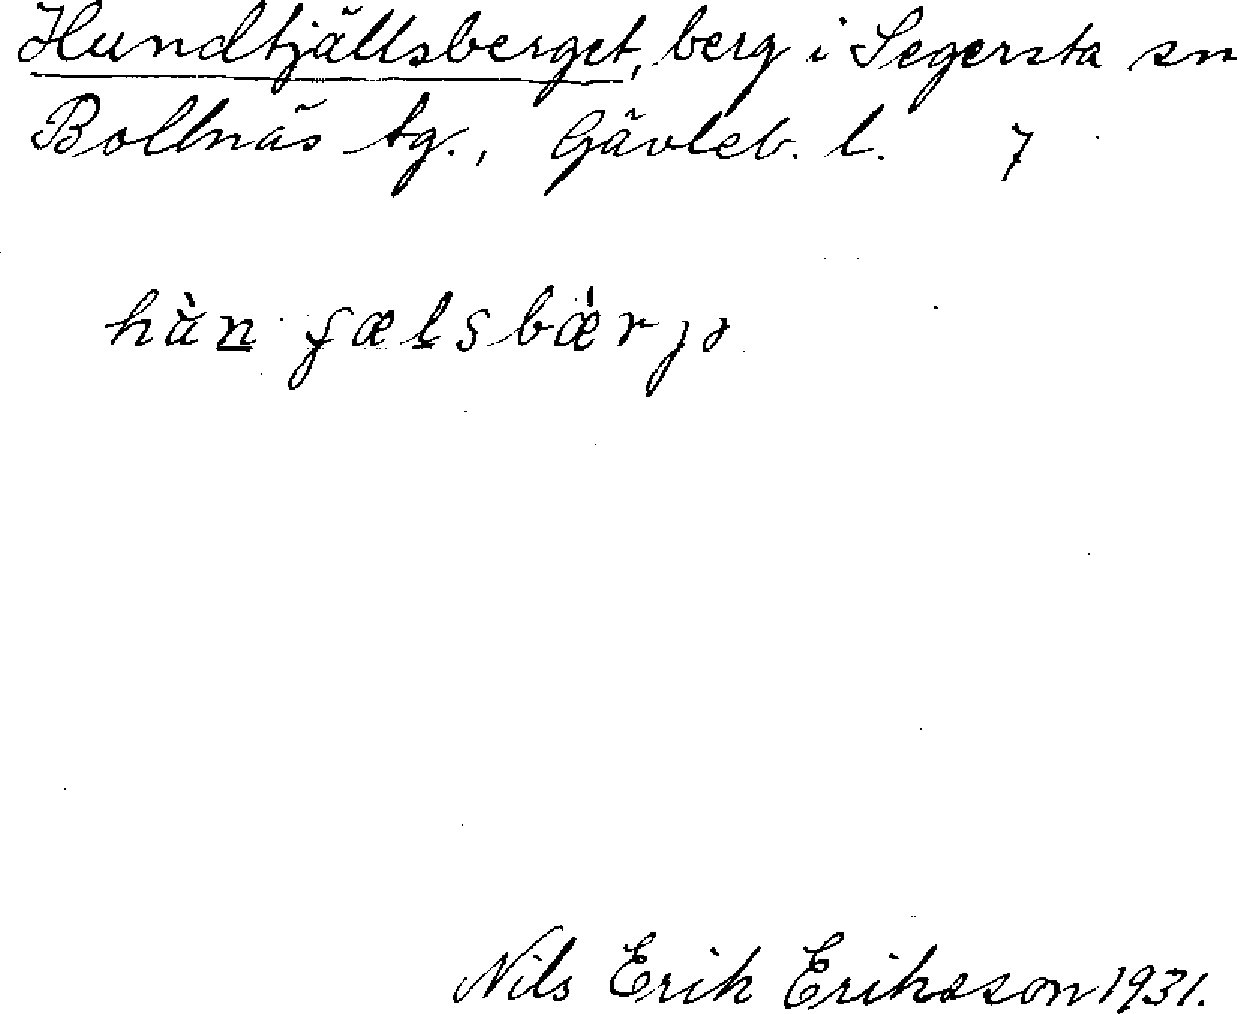 Hundtjällsberget, berg i Segersta sn
Bollnäs tg., Gävleb. l. 7
hùn fælsbæ̀rjə
Nils Erik Eriksson 1931.